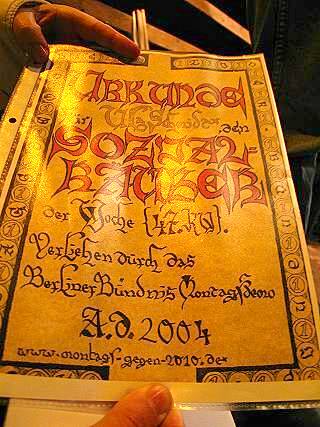 URKUNDE
für den
SOZIAL-
RÄUBER
der Woche {47.KW}.
Verliehen durch das
Berliner Bündnis Montagsdemo
A.D. 2004
www.montags-gegen-2010.de